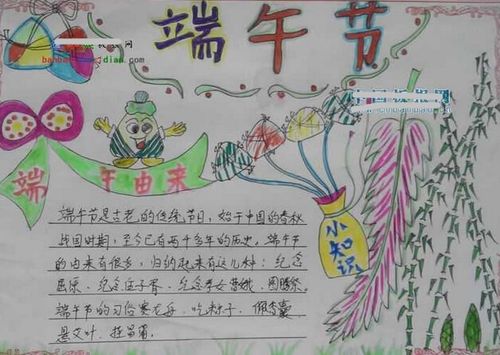 端午节
端午由来
小知识
端午节是古老的传统节日,始于中国的春秋
战国时期,至今已有两千多年的历史。端午节
的由来有很多,归纳起来有这几种:纪念
屈原、纪念伍子胥、纪念孝女曹娥、图腾祭
端午节的习俗赛龙舟、吃粽子、佩香囊
悬艾叶、挂菖蒲。